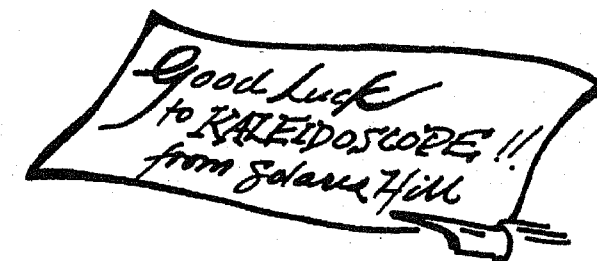 Good Luck
to KALEIDOSCOPE!!
from Solaria Hill